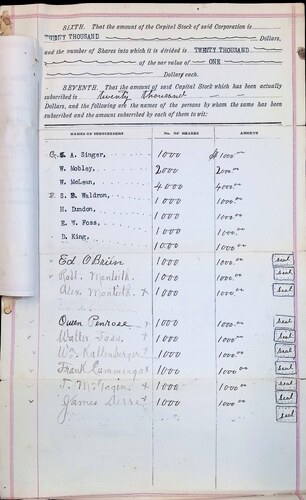 SIXTH. That the amount of the Capital Stock of said Corporation is
TWENTY THOUSAND Dollars,
and the number of Shares into which it is divided is TWENTY THOUSAND
of the par value of ONE
Dollar each.
SEVENTH. That the amount of said Capital Stock which has been actually
subscribed is twenty thousand
Dollars, and the following are the names of the persons by whom the same has been
subscribed and the amount subscribed by each of them to wit:
NAMES OF SUBSCRIBERS No. OF SHARES AMOUNTS
A. Singer, 1000 $1000.00
W. Mobley, 2000 2000.00
W. McLean, 4000 4000.00
Waldron, 1000 1000.00
H. Dundon, 1000 1000.00
E. W. Foss, 1000 1000.00
D. King, 1000 1000.00
1000 1000.00
Ed O'Brien 1000 1000.00 Seal
Robt. Monteith 1000 1000.00 Seal
Alex. Monteith x 1000 1000.00 Seal
Owen Penrose 1000 1000.00 Seal
Walter 1000 1000.00 Seal
Wm Kaltenberger 1000 1000.00 Seal
Frank Cummings 1000 1000.00 Seal
1000 1000.00 Seal
James 1000 1000.00 Seal
Seal